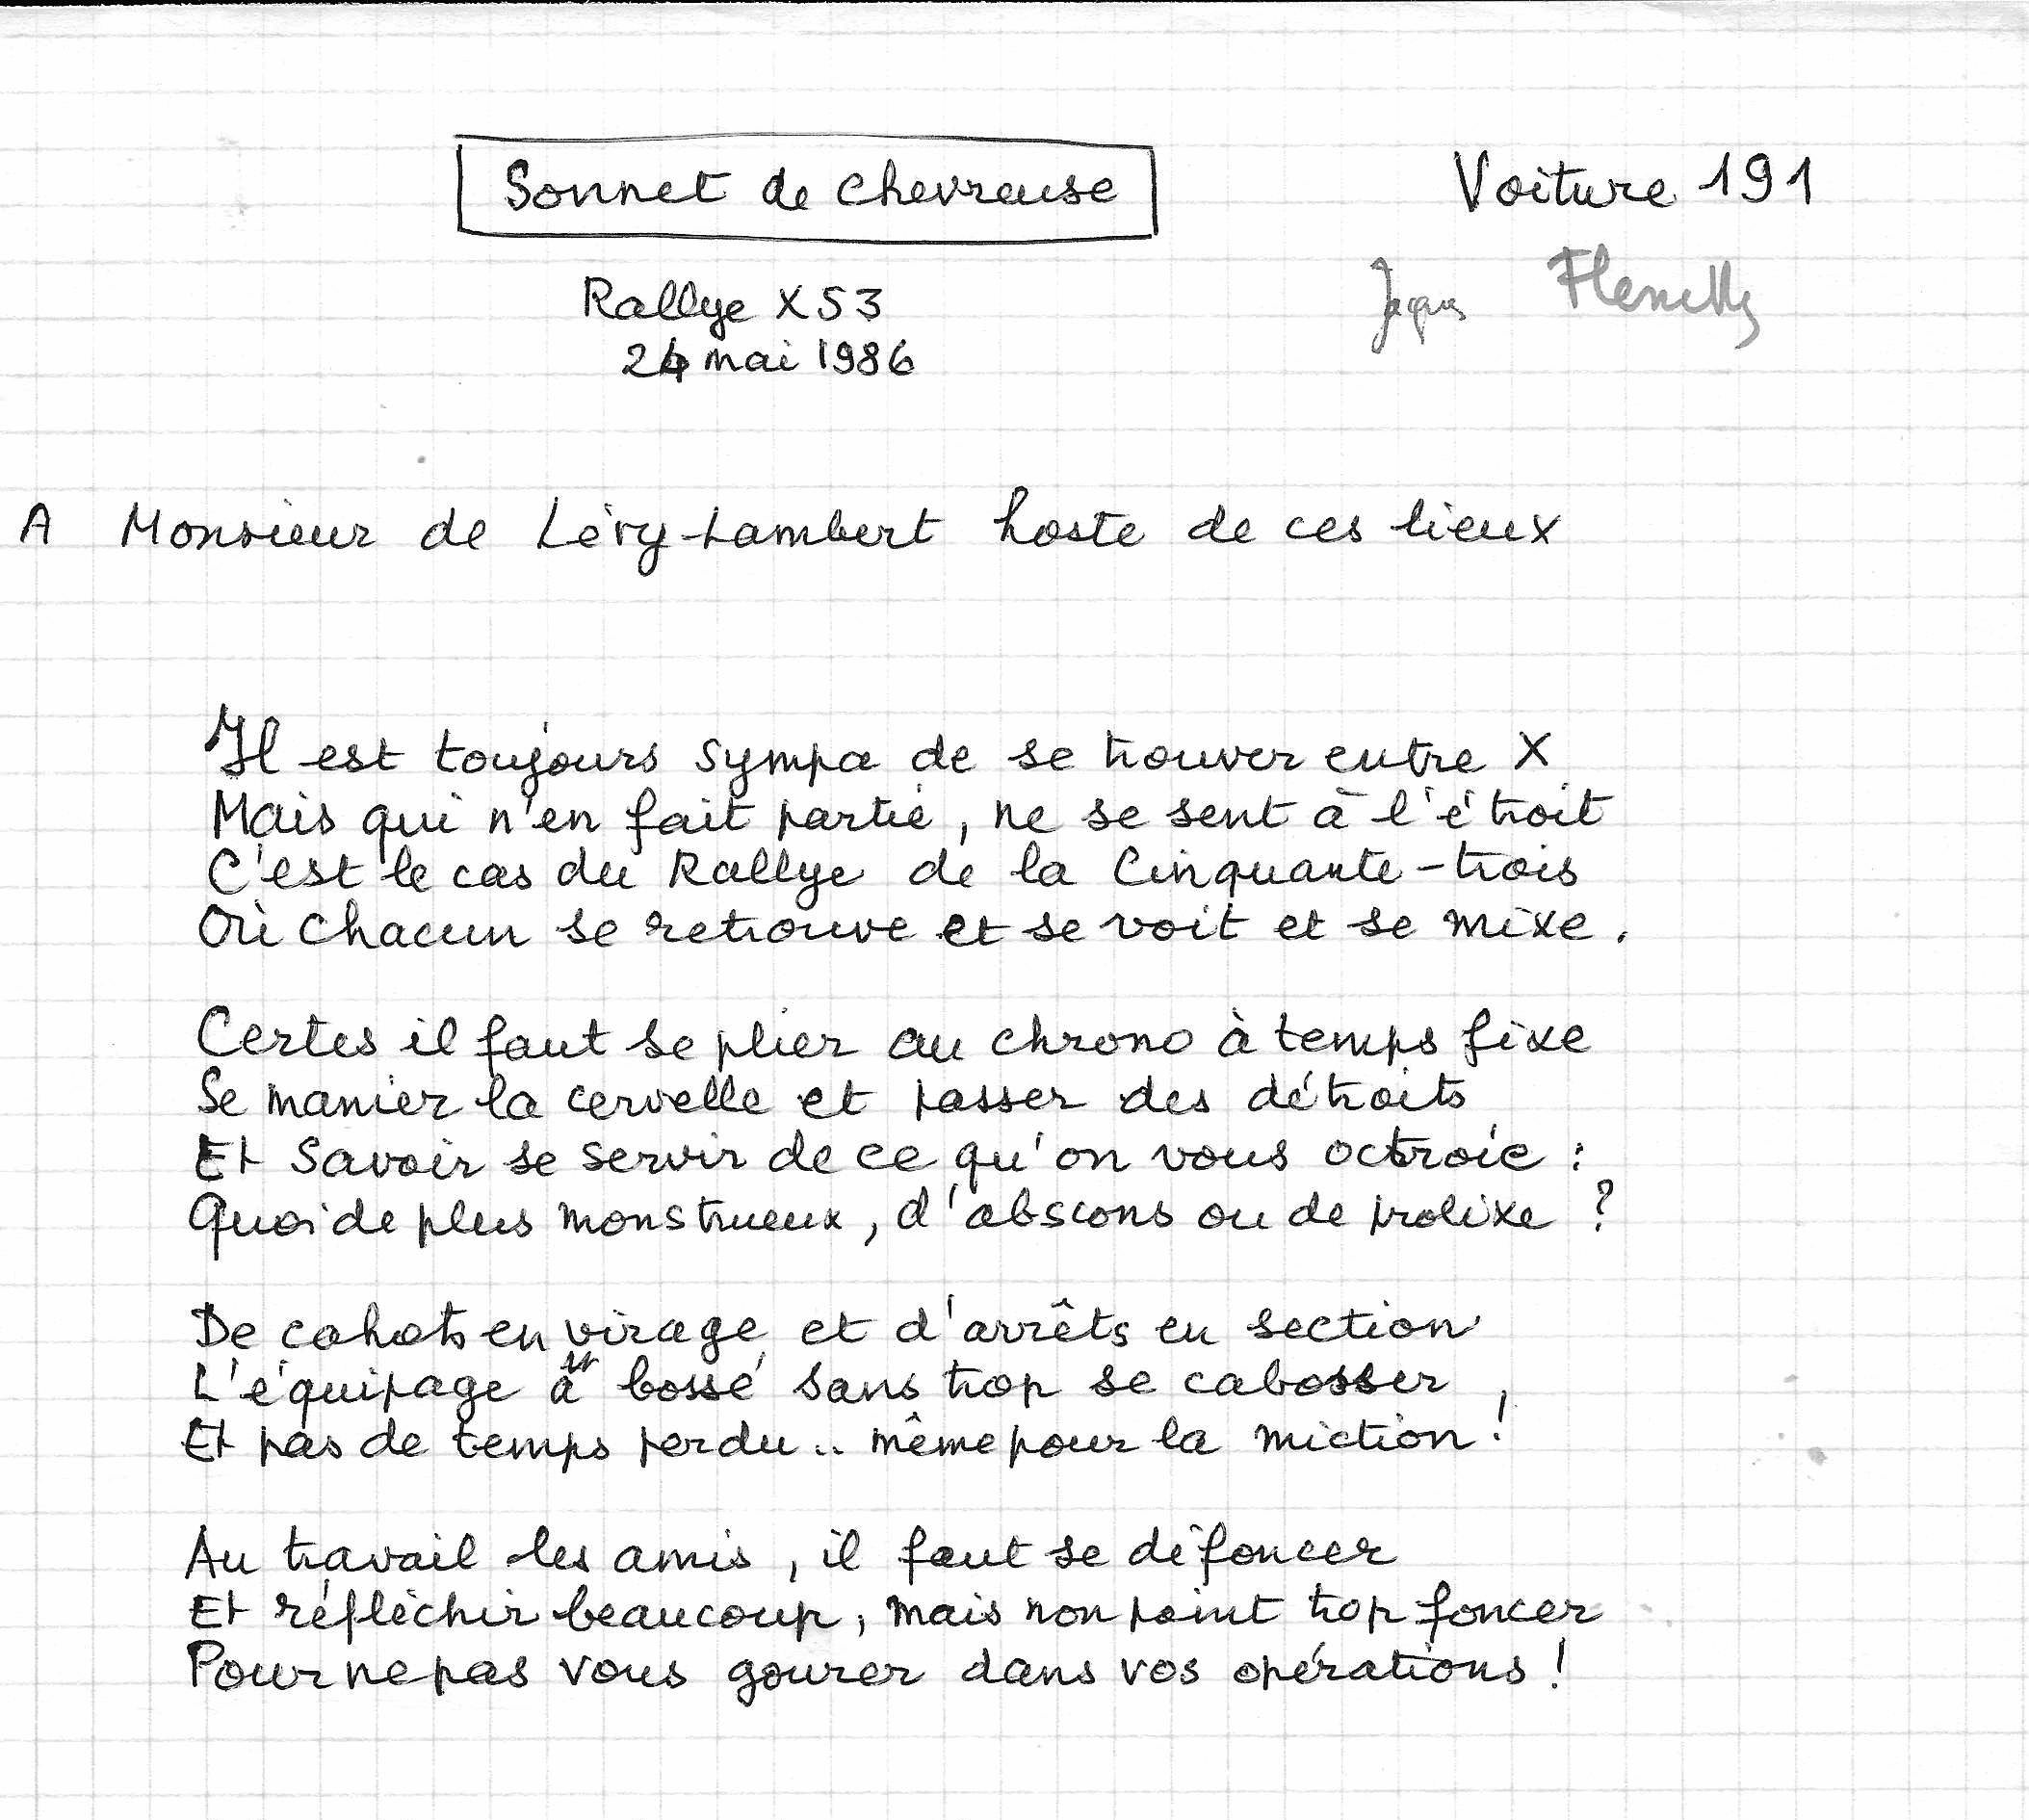 Sonnet de Chevreuse
Voiture 191
Rallye X53
Jacques
24 mai 1986
A Monsieur de Lévy-Lambert hoste de ces lieux
Il est toujours sympa de se trouver entre X
Mais qui n'en fait partie, ne se sent à l'étroit
C'est le cas du Rallye de la Cinquante-trois
Où chacun se retrouve et se voit et se mixe.
Certes il faut se plier au chrono à temps fixe
Se manier la cervelle et passer des détroits
Et savoir se servir de ce qu'on vous octroie :
Quoi de plus monstrueux, d'abscons ou de prolixe ?
De cahots en virage et d'arrêts en section
L'équipage a bossé sans trop se cabosser,
Et pas de temps perdu.. même pour la miction !
Au travail les amis, il faut se défoncer
Et réfléchir beaucoup, mais non point trop foncer
Pour ne pas vous gourer dans vos opérations !